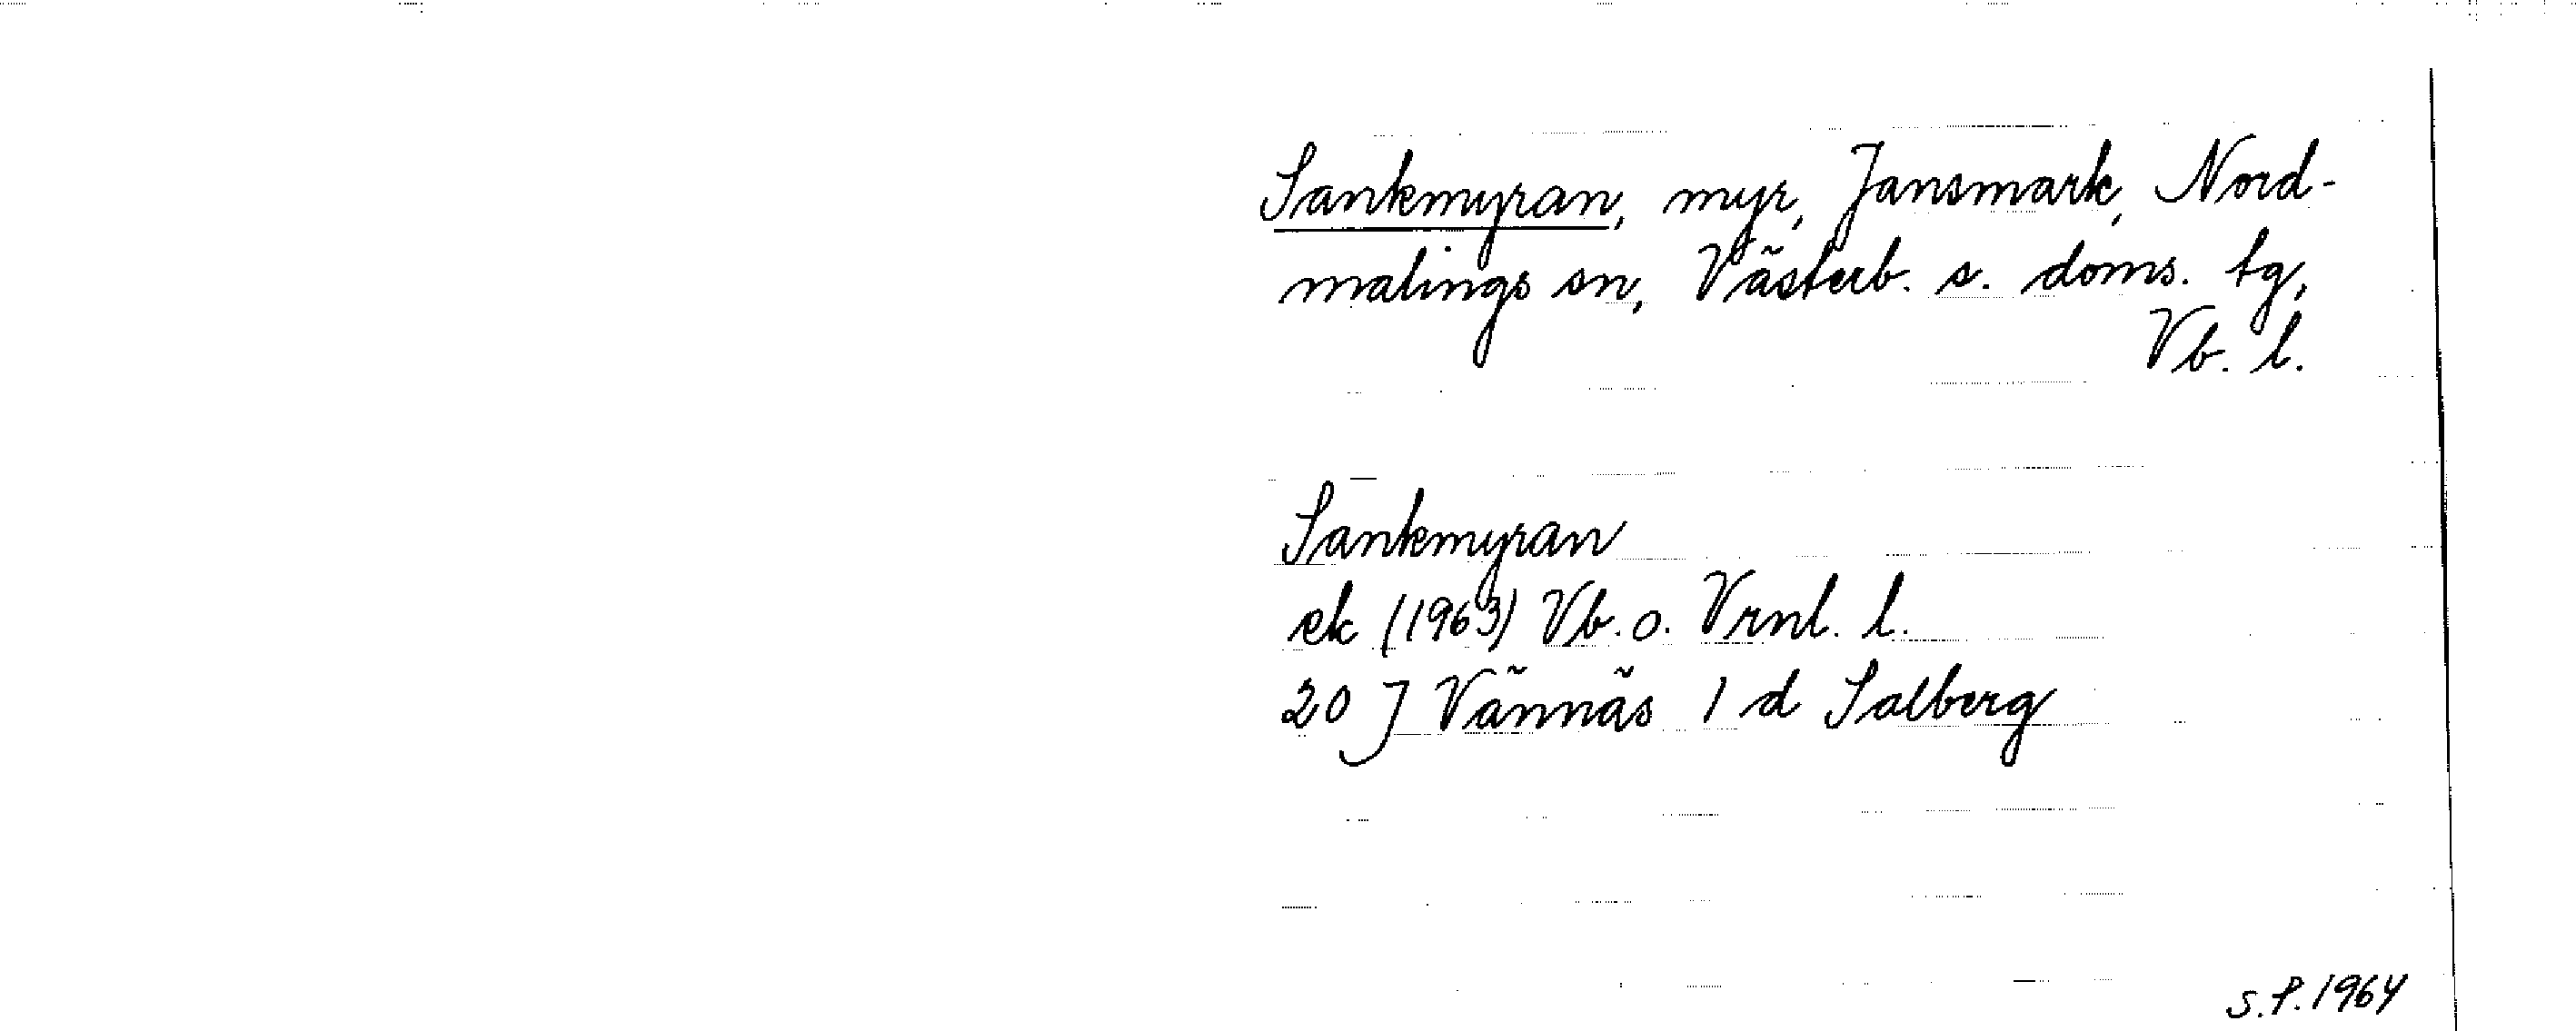 Sankmyran, myr, Jansmark, Nord-
malings sn, Västerb. s. doms. tg,
Vb. l.
Sankmyran
ek (1963) Vb. o. Vrnl. l.
20 J Vännäs 1 d Salberg
S.P. 1964